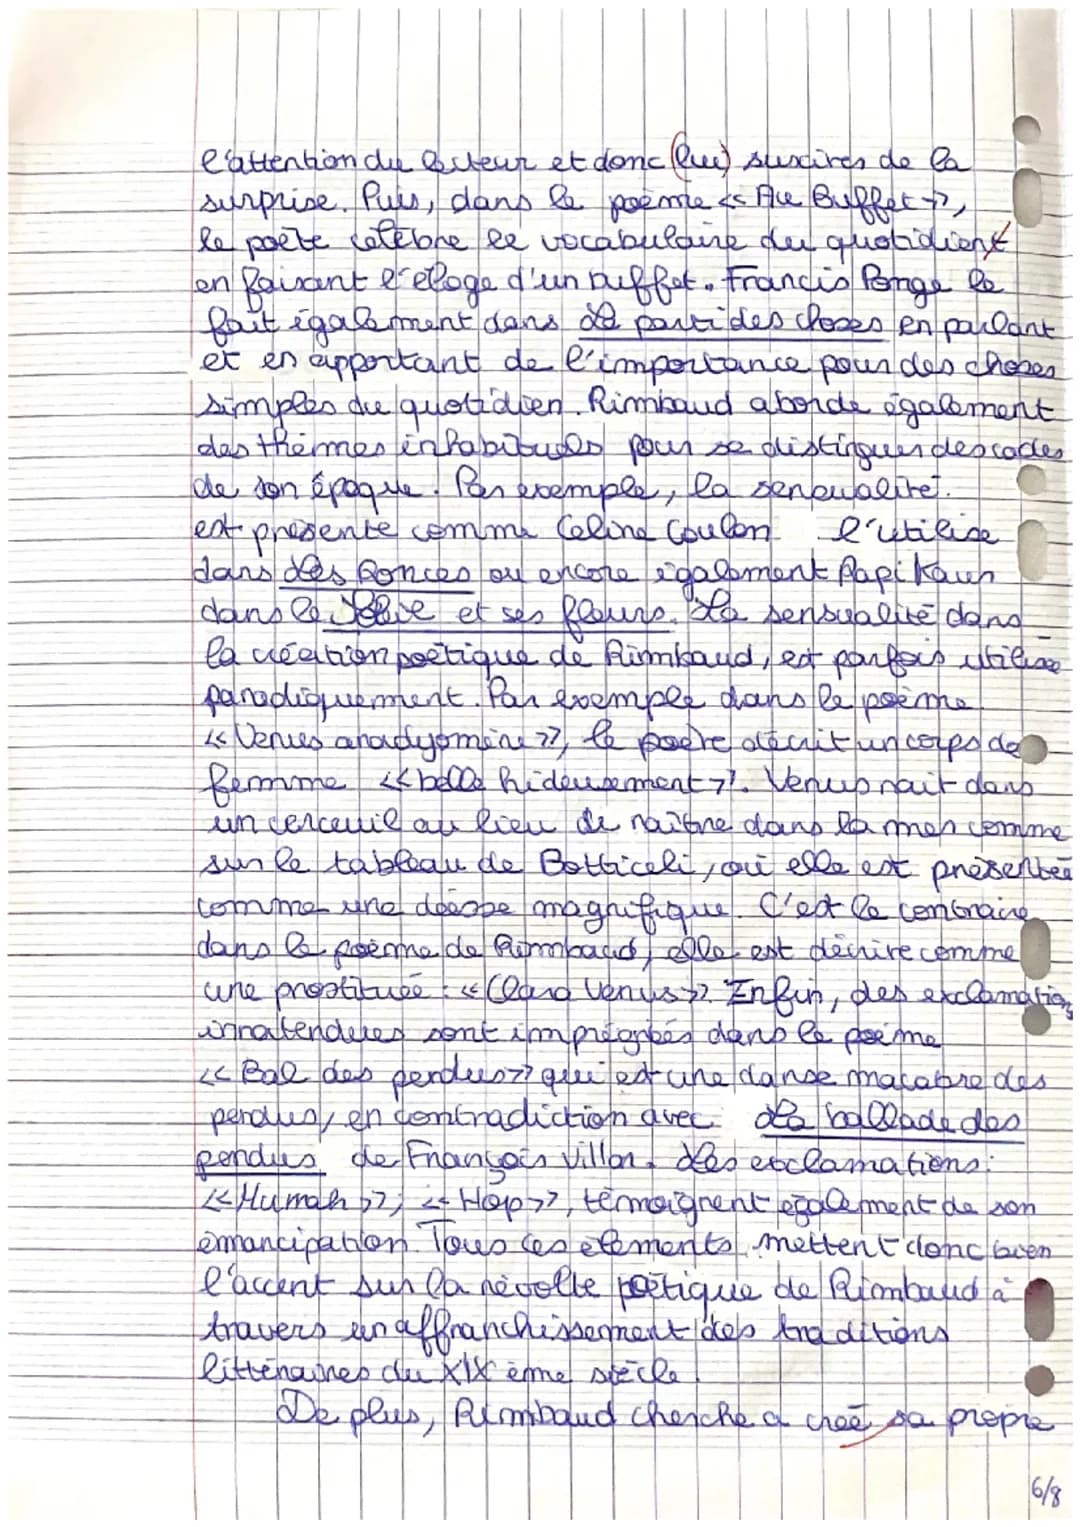 l'attention du lecteur et donc (lui) susciter de la
surprise. Puis, dans le poème << Au Buffet >>,
le poète célèbre le vocabulaire du quotidient
en faisant l'éloge d'un buffet. Francis Ponge le
fait également dans Le parti des choses en parlant
et en apportant de l'importance pour des choses
simples du quotidien. Rimbaud aborde également
des thèmes inhabituels pour se distinguer des codes
de son époque. Par exemple, la sensualité.
est présente comme Celine Coulon l'utilise
dans des Ronces ou encore également Papi Kaur
dans le et ses fleurs. La sensualité dans
la création poétique de Rimbaud, est parfois utilise
parodiquement. Par exemple dans le poème
<< Venus anadyomène >>, le poète décrit un corps de
femme << belle hideusement >>. Venus nait dans
un cerceuil au lieu de naître dans la mer comme
sur le tableau de Botticeli, où elle est présentée
comme une déesse magnifique. C'est le contraire
dans le poème de Rimbaud, elle est décrire comme
une prostituée : << Clara Venus >>. Enfin, des exclamation
innatendues sont imprégnés dans le poème
<< Bal des pendus >> qui est une danse macabre des
pendus, en contradiction avec La ballade des
pendus de François Villon. Les exclamations:
<< Humah >>; << Hop >>, témoignent également de son
émancipation. Tous ces éléments mettent donc bien
l'accent sur la révolte poétique de Rimbaud à
travers un affranchissement des traditions
littéraires du XIX ème siècle.
De plus, Rimbaud cherche a creé sa propre
6/8